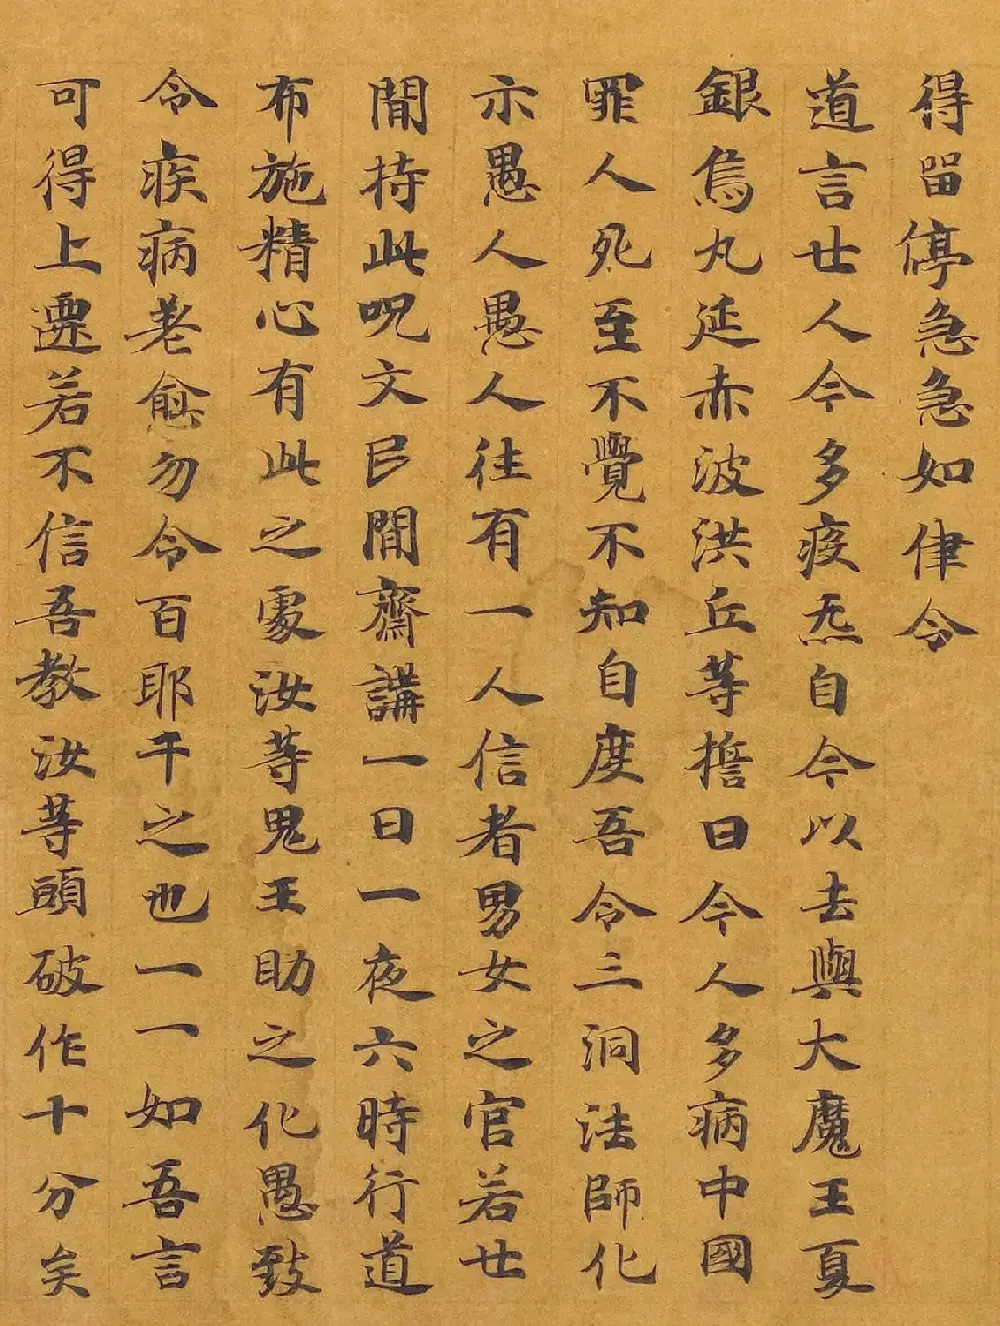 得留停急急如律令
道言廿人今多疫炁自今以去與大魔王夏
銀鳥丸延赤波洪丘等擔曰今人多病中國
罪人死至不覺不知自度吾令三洞法師化
示愚人愚人往有一人信者男女之官若廿
間持此呪文民間齋講一日一夜六時行道
布施精心有此之處汝等鬼王助之化愚致
令疾病老愈勿令百耶干之也一一如吾言
可得上遷若不信吾教汝等頭破作十分矣